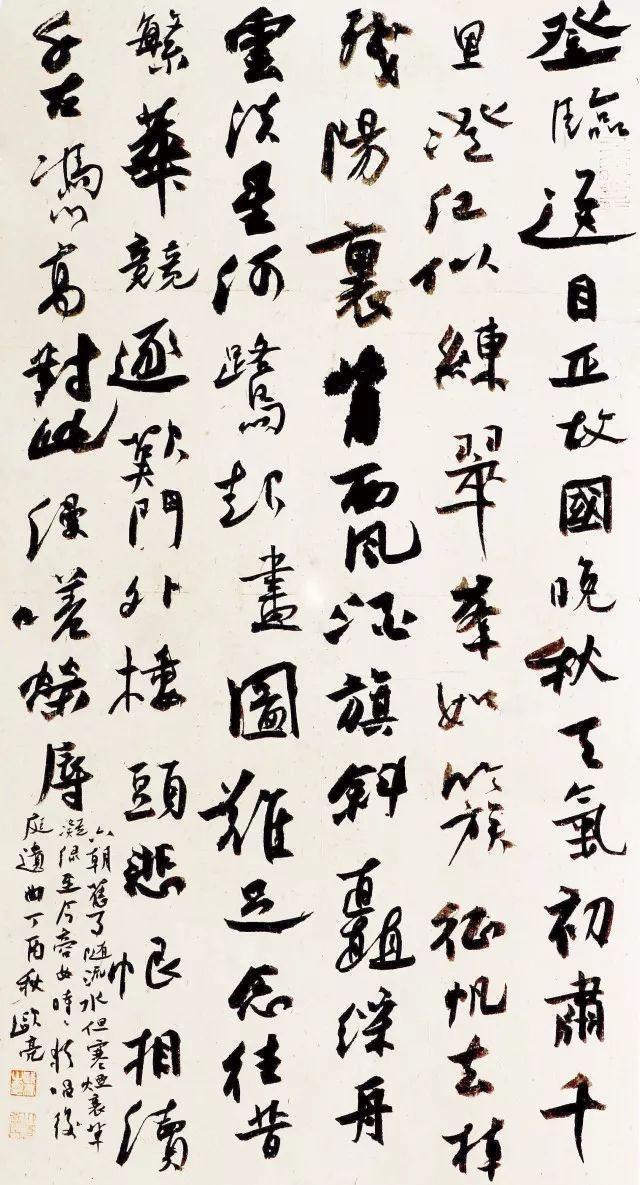 登臨送目正故國晚秋天氣初肅千
里澄江似練翠峯如簇征帆去棹
殘陽裏背西風酒旗斜矗綵舟
雲淡星河鷺起畫圖難足念往昔
繁華競逐歎門外樓頭悲恨相續
千古憑高對此漫嗟榮辱
六朝舊事隨流水但寒煙衰草
凝綠至今商女時〻猶唱後
庭遺曲丁酉秋歐亮